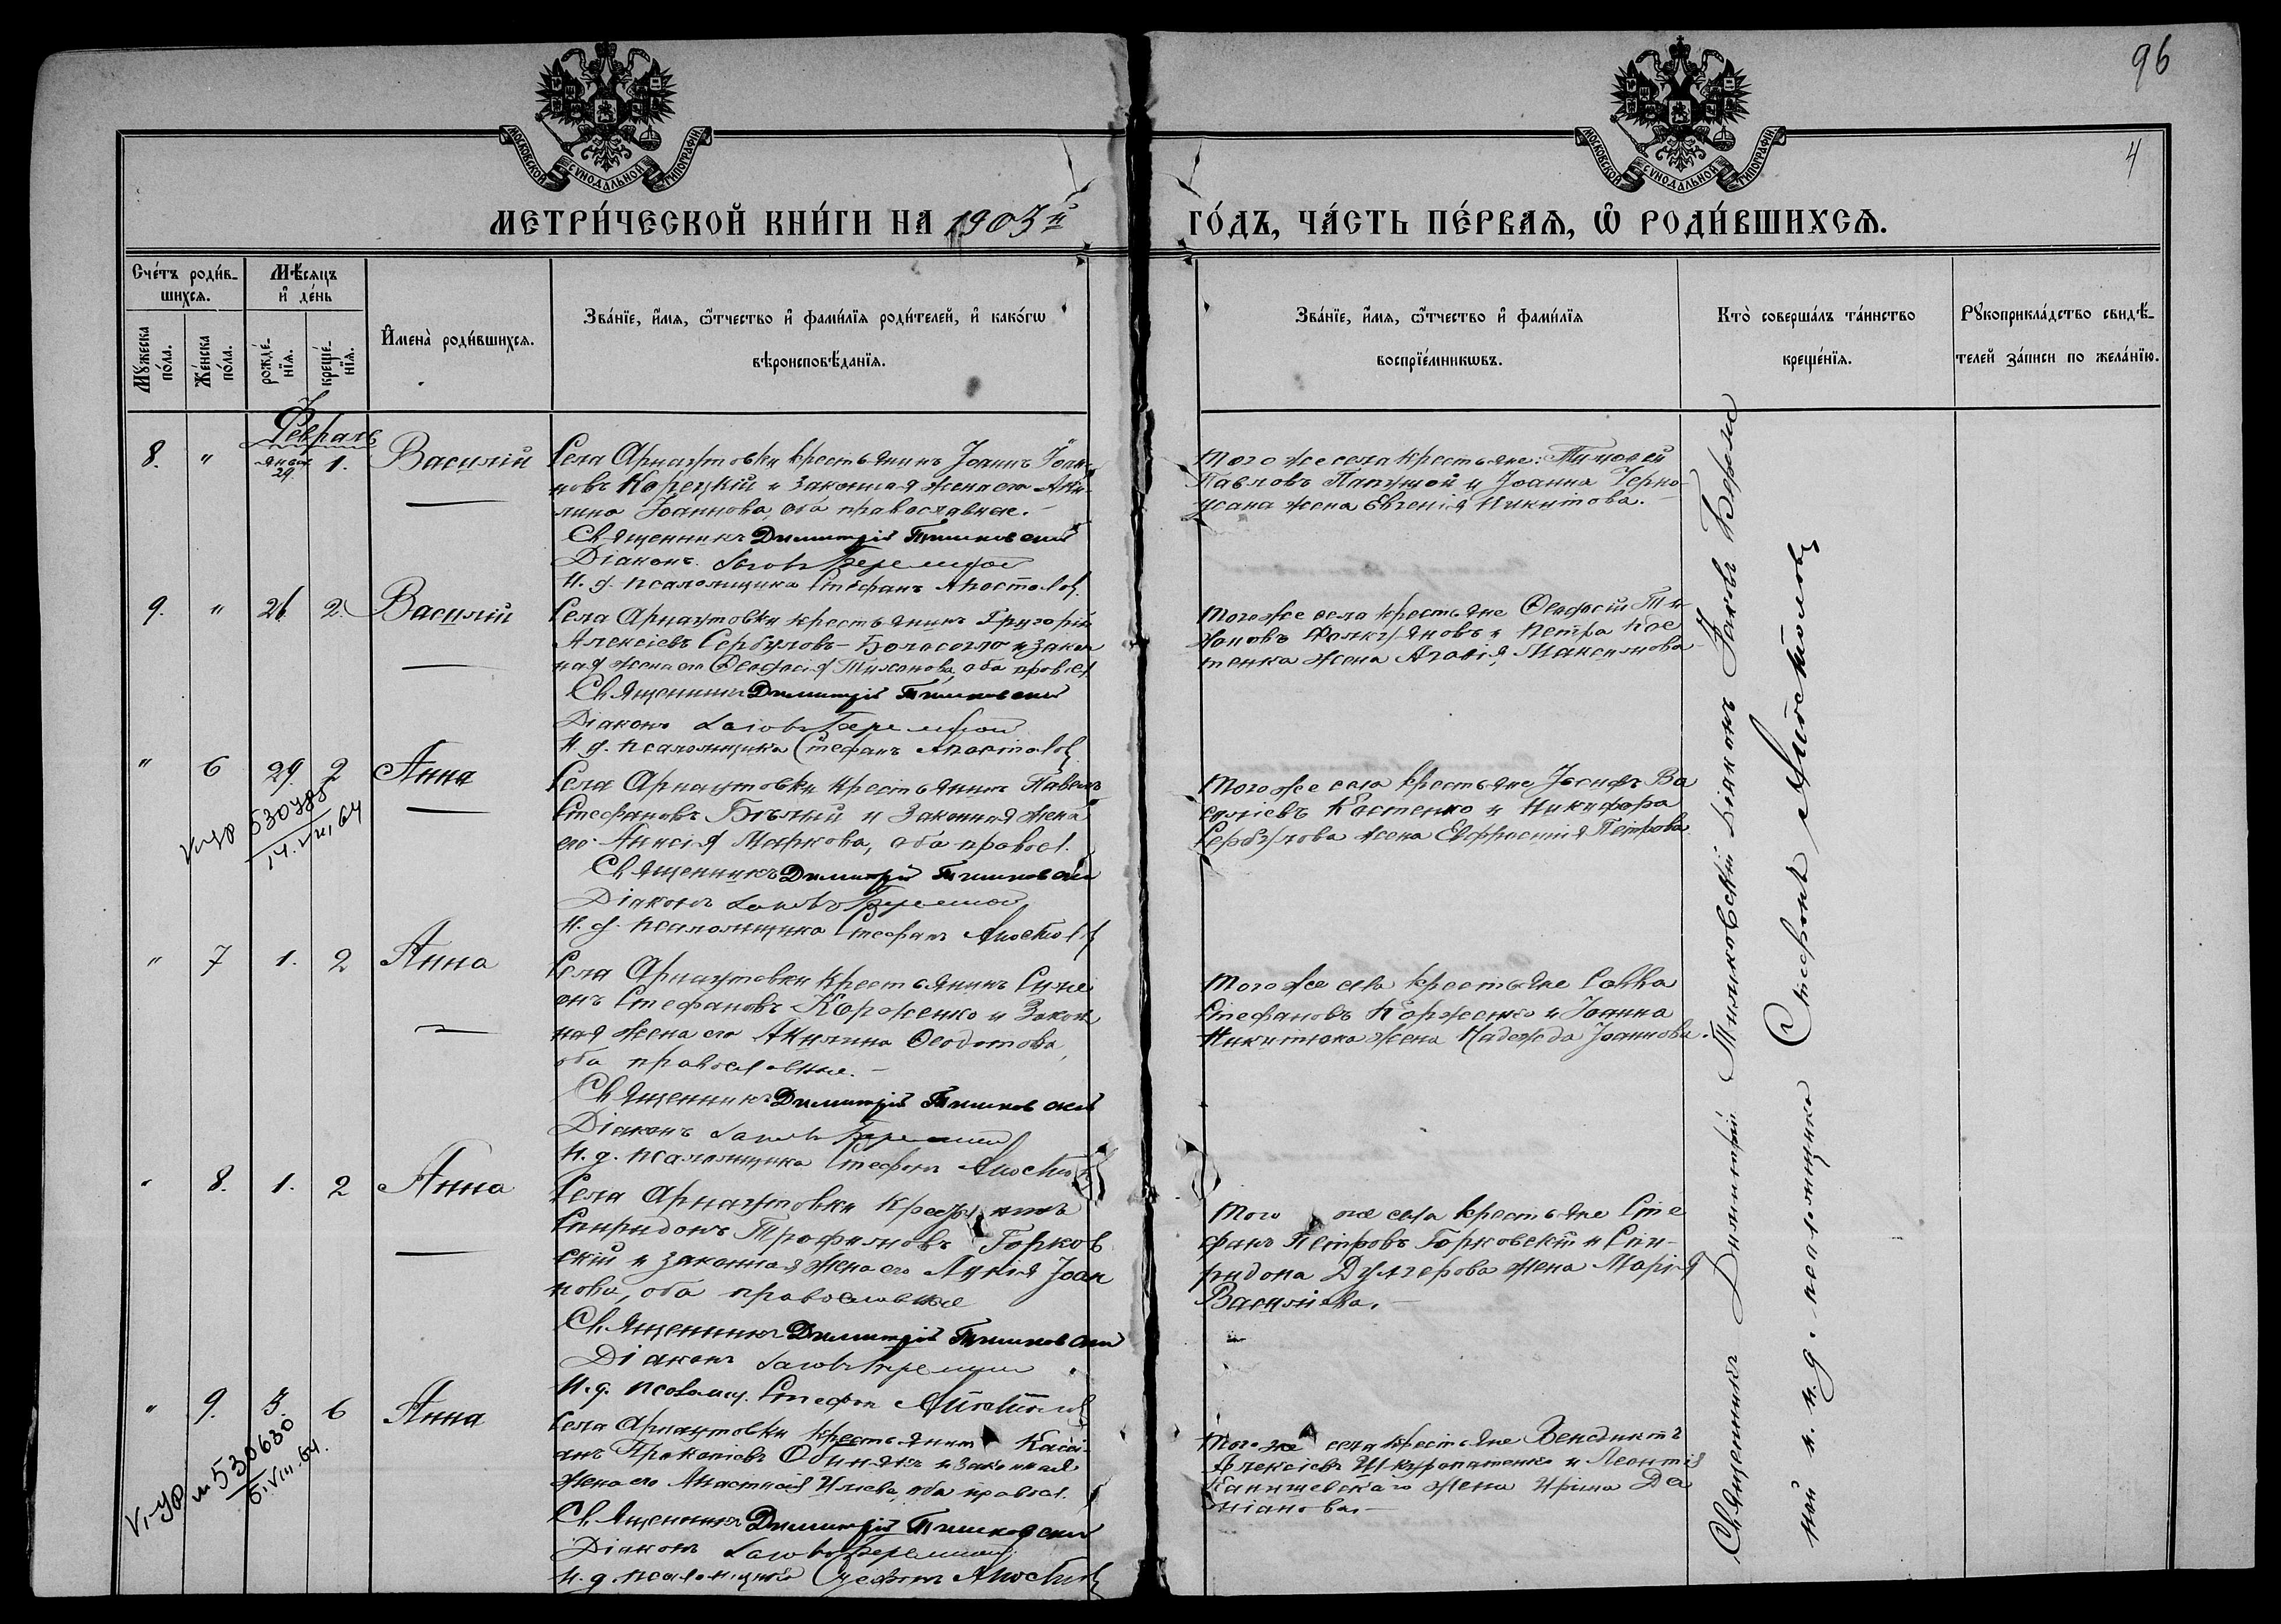 96
4
МОСКОВСКОЙ СУНОДАЛЬНОЙ ТИПОГРАФІИ
МОСКОВСКОЙ СУНОДАЛЬНОЙ ТИПОГРАФІИ
МЕТРИ́ЧЕСКОЙ КНИ́ГИ НА 1903й
ГО́ДЪ, ЧА́СТЬ ПЕ́РВАѦ, Ѡ РОДИ́ВШИХСѦ.
Сче́тъ роди́в-
шихсѧ.
Мѣ́сяцъ
и҆ де́нь
Мꙋ́жеска по́ла.
Же́нска по́ла.
рожде́-нїѧ.
креще́-нїѧ.
И҆мена̀ роди́вшихсѧ.
Зва́нїе, и҆́мѧ, ѻ҆́тчество и҆ фами́лїѧ роди́телей, и҆ како́гѡ
вѣроисповѣ́данїѧ.
Зва́нїе, и҆́мѧ, ѻ҆́тчество и҆ фами́лїѧ
воспрїе́мникѡвъ.
Кто̀ соверша́лъ та́инство
креще́нїѧ.
Рꙋкоприкла́дство свидѣ́-
телей за́писи по жела́нїю.
Февраль
8. " Январ 29. 1. Василій
Села Арнаутовки крестьянинъ Іоаннъ Іоан-
новъ Корецкій и законная жена его Аки-
лина Іоаннова, оба православные.
Священникъ Димитрій Тишковскій
Діаконъ Іаковъ
И. д. псаломщика Стефанъ Апостоловъ
Того же села крестьяне: Тимофей
Павловъ Папушой и Іоанна Черно-
усана жена Евгенія Никитова.
9. " 26 2. Василій
Села Арнаутовки крестьянинъ Григорій
Алексіевъ Сербуловъ-Болосогло и закон
ная жена его Феодосія Тихонова, оба правосл
Священникъ Димитрій Тишковскій
Діаконъ Іаковъ
И. д. псаломщика Стефанъ Апостоловъ
Того же села крестьяне Феодосій Ти-
хоновъ и Петра Кос
тенка жена Агафія Максимова
" 6 29 2 Анна
Села Арнаутовки крестьянинъ Павелъ
Стефановъ Бѣлый и законная жена
его Анисія Маркова, оба правосл.
Священникъ Димитрій Тишковскій
Діаконъ Іаковъ
И. д. псаломщика Стефанъ Апостоловъ
Того же села крестьяне Іосифъ Ва
силіевъ Костенко и Никифора
Сербулова жена Евфросинія Петрова
V-УР 530785
14.VII.64
" 7 1. 2 Анна
Села Арнаутовки крестьянинъ Симе
онъ Стефановъ Корженко и закон
ная жена его Акилина Феодотова,
оба православные.
Священникъ Димитрій Тишковскій
Діаконъ Іаковъ
И. д. псаломщика Стефанъ Апостоловъ
Того же села крестьяне Савва
Стефановъ Корженко и Іоанна
Никитюка жена Надежда Іоаннова.
" 8. 1. 2 Анна
Села Арнаутовки крестьянинъ
Спиридонъ Трофимовъ Горков
скій и законная жена его Лукія Іоан
нова, оба православные
Священникъ Димитрій Тишковскій
Діаконъ Іаковъ
И. д. псаломщ. Стефанъ Апостоловъ
Того же села крестьяне Сте
фанъ Петровъ Горковскій и Спи-
ридона Дулгерова жена Марія
Василіева.
" 9. 3. 6 Анна
Села Арнаутовки крестьянинъ Кассі-
анъ Прокопіевъ и законная
жена его Анастасія Иліева, оба правосл.
Священникъ Димитрій Тишковскій
Діаконъ Іаковъ
И. д. псаломщика Стефанъ Апостоловъ
Того же села крестьяне Венедиктъ
Алексіевъ Шкуропатенко и Леонтія
Канишевскаго жена Ирина Да
міанова.
V-УР № 530630
6.VIII.64.
Священникъ Димитрій Тишковскій Діаконъ Іаковъ
и. д. псаломщика Стефанъ Апостоловъ